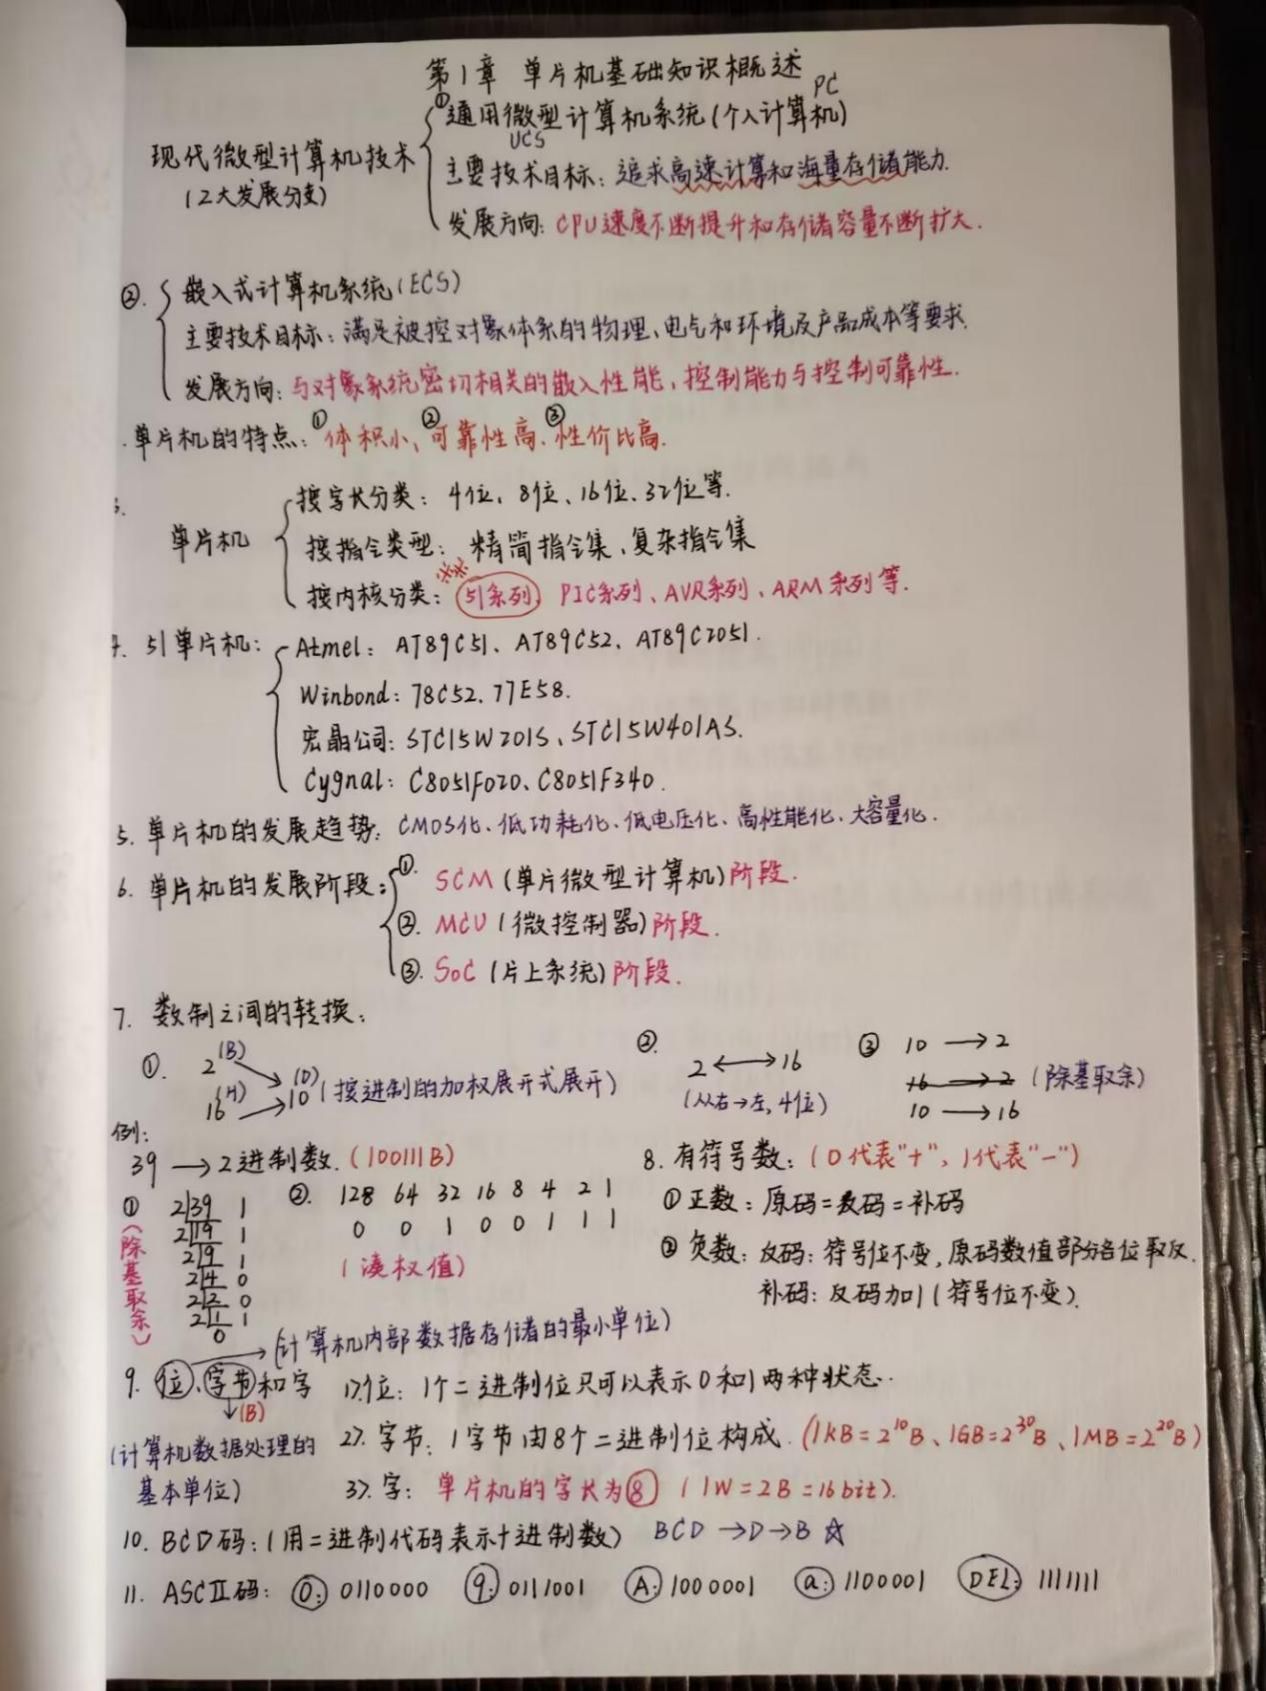 第1章 单片机基础知识概述
现代微型计算机技术
(2大发展分支)
① 通用微型计算机系统(个人计算机) PC
UCS
主要技术目标: 追求高速计算和海量存储能力.
发展方向: CPU速度不断提升和存储容量不断扩大.
②. 嵌入式计算机系统(ECS)
主要技术目标: 满足被控对象体系的物理、电气和环境及产品成本等要求.
发展方向: 与对象系统密切相关的嵌入性能, 控制能力与控制可靠性.
单片机的特点: ①体积小、②可靠性高、③性价比高.
3.
单片机
按字长分类: 4位、8位、16位、32位等.
按指令类型: 精简指令集、复杂指令集
按内核分类: 51系列, PIC系列、AVR系列、ARM系列等.
4. 51单片机: Atmel: AT89C51、AT89C52、AT89C2051.
Winbond: 78C52、77E58.
宏晶公司: STC15W201S、STC15W401AS.
Cygnal: C8051F020、C8051F340.
5. 单片机的发展趋势: CMOS化、低功耗化、低电压化、高性能化、大容量化.
6. 单片机的发展阶段: ①. SCM (单片微型计算机) 阶段.
②. MCU (微控制器) 阶段.
③. SoC (片上系统) 阶段.
7. 数制之间的转换:
①. 2(B)
16(H) → 10(D) (按进制的加权展开式展开)
②. 2 ⟷ 16
(从右→左, 4位)
③ 10 → 2
16 → 2 (除基取余)
10 → 16
例:
39 → 2进制数. (100111B)
① 2|39 1
2|19 1
2|9 1
2|4 0
2|2 0
2|1 1
0
(除基取余)
②. 128 64 32 16 8 4 2 1
0 0 1 0 0 1 1 1
(凑权值)
8. 有符号数: (0代表"+", 1代表"-")
①正数: 原码=反码=补码
②负数: 反码: 符号位不变, 原码数值部分各位取反.
补码: 反码加1 (符号位不变).
→ (计算机内部数据存储的最小单位)
9. 位、字节和字 1>.位: 1个二进制位只可以表示0和1两种状态.
↓(B)
(计算机数据处理的
基本单位)
2>. 字节: 1字节由8个二进制位构成. (1KB=2¹⁰B、1GB=2³⁰B、1MB=2²⁰B)
3>. 字: 单片机的字长为⑧ (1W=2B=16bit).
10. BCD码: (用二进制代码表示十进制数) BCD→D→B ☆
11. ASCⅡ码: 0: 0110000 9: 0111001 A: 1000001 a: 1100001 DEL: 1111111